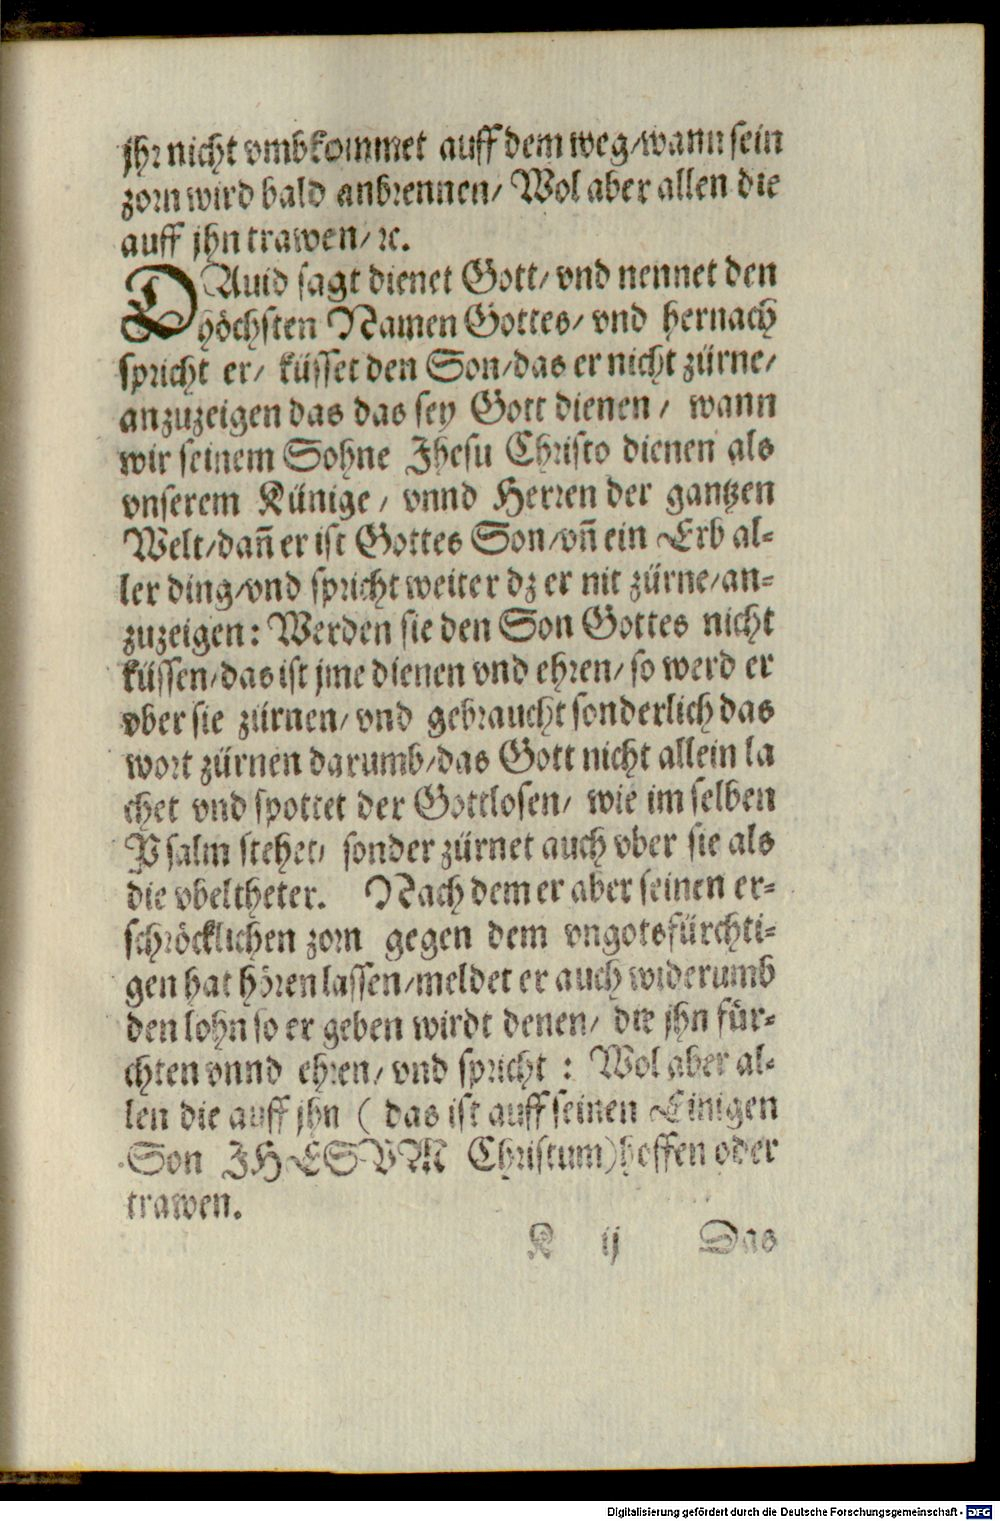 jhr nicht vmbkommet auff dem weg/wann sein
zorn wird bald anbrennen/ Wol aber allen die
auff jhn trawen/ ꝛc.
DAuid sagt dienet Gott/ vnd nennet den
höchsten Namen Gottes/ vnd hernach
spricht er/ küsset den Son/das er nicht zürne/
anzuzeigen das das sey Gott dienen/ wann
wir seinem Sohne Jhesu Christo dienen als
vnserem Künige/ vnnd Herren der gantzen
Welt/dañ er ist Gottes Son/vñ ein Erb al-
ler ding/vnd spricht weiter dz er nit zürne/an-
zuzeigen: Werden sie den Son Gottes nicht
küssen/das ist jme dienen vnd ehren/ so werd er
vber sie zürnen/ vnd gebraucht sonderlich das
wort zürnen darumb/das Gott nicht allein la
chet vnd spottet der Gottlosen/ wie im selben
Psalm stehet/ sonder zürnet auch vber sie als
die vbeltheter. Nach dem er aber seinen er-
schröcklichen zorn gegen dem vngotsfürchti-
gen hat hören lassen/meldet er auch widerumb
den lohn so er geben wirdt denen/ die jhn für-
chten vnnd ehren/ vnd spricht : Wol aber al-
len die auff jhn ( das ist auff seinen Einigen
Son JHESVM Christum) hoffen oder
trawen.
K ij Das
Digitalisierung gefördert durch die Deutsche Forschungsgemeinschaft - DFG